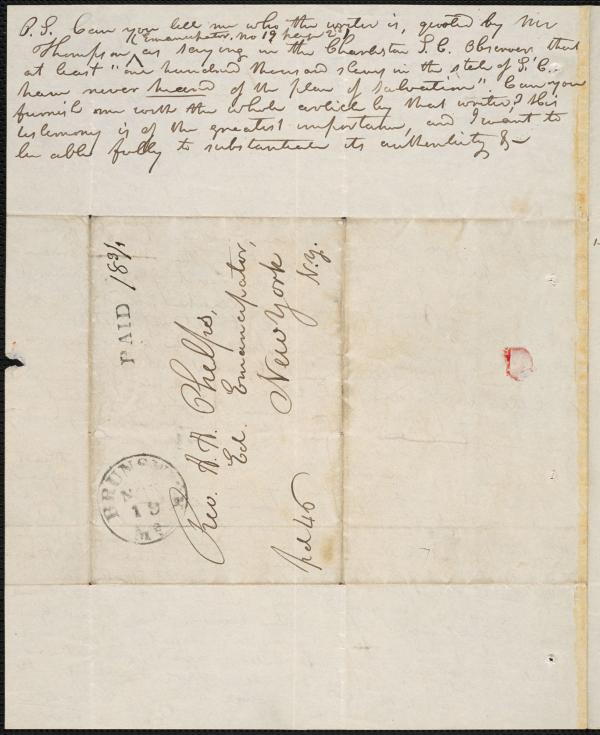 P.S. Can you tell me who the writer is, quoted by Mr
(Emancipator, no 19 page 2d)
Thompson, as saying in the Charleston S.C. Observer that
at least "one hundred thousand slaves in the state of S.C.
have never heard of the plan of salvation." Can you
furnish me with the whole article by that writer? His
testimony is of the greatest importance, and I want to
be able fully to substantiate its authenticity &c
PAID 18 3/4
Rev. A. A. Phelps,
Ed. Emancipator,
New York
N.Y.
pd 46
BRUNSWICK